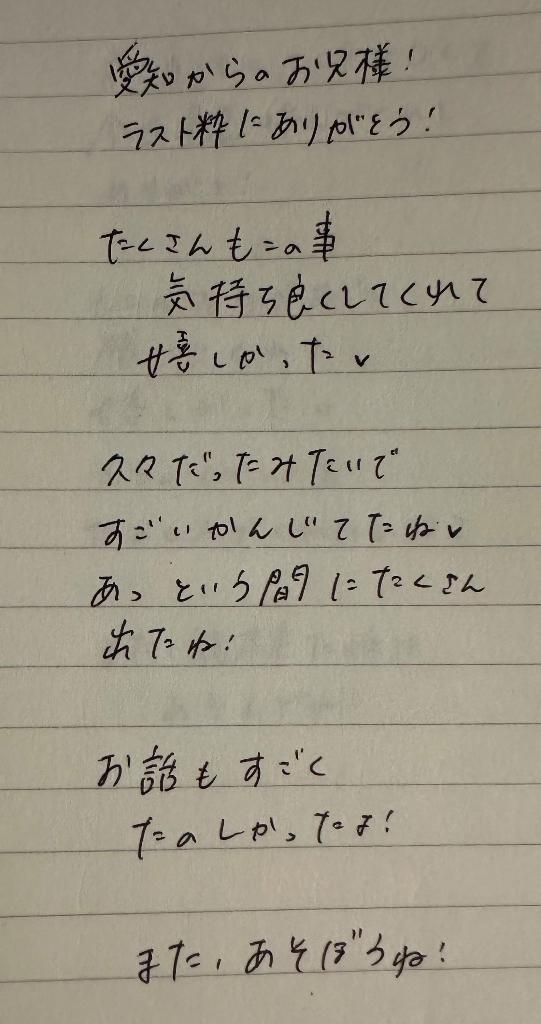 愛知からのお兄様!
ラスト枠にありがとう!
たくさんもこの事
気持ち良くしてくれて
嬉しかった✓
久々だったみたいで
すごいかんじてたね✓
あっという間にたくさん
出たね!
お話もすごく
たのしかったよ!
また、あそぼうね!